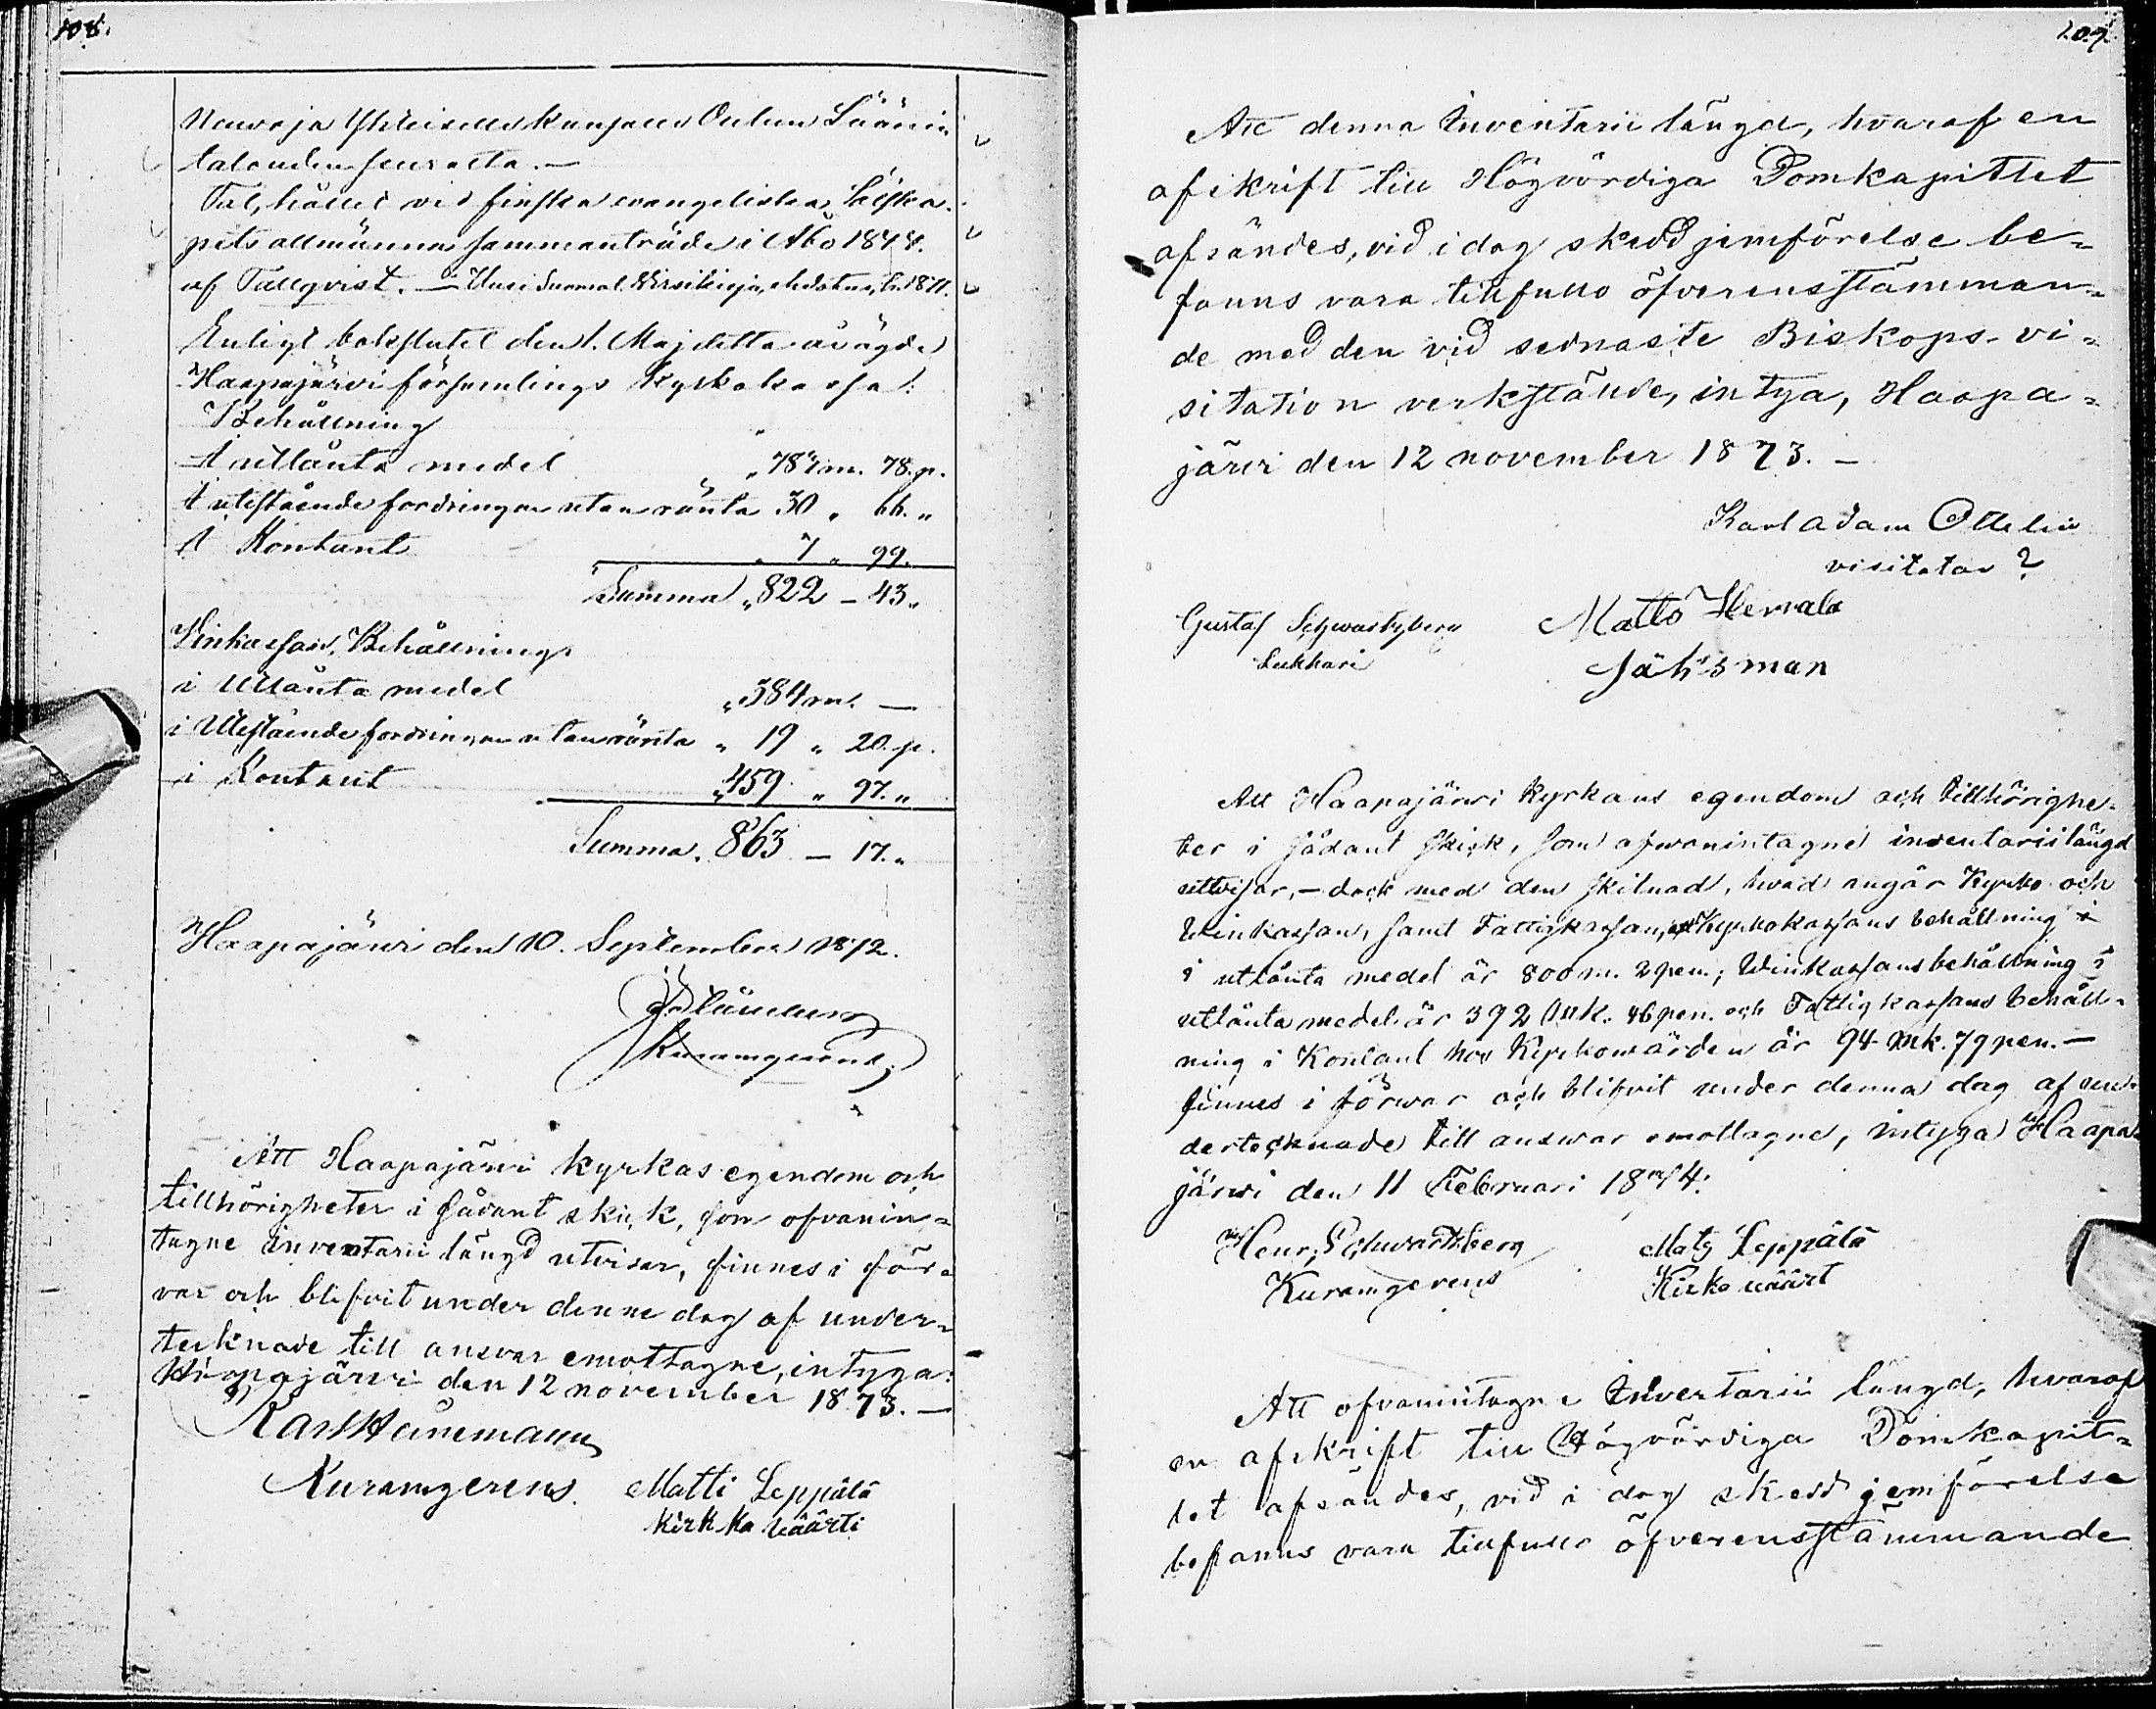 108.
Neuvoja Yhteiselle kansalle Oulun Läänin
talouden seuralta. —
Tal, hållet vid finska evangeliska Sälska-
pets allmänna sammanträde i Åbo 1874.
af Tallqvist. — Uusi Suomal. Virsikirja, ehdotus, 1871.
Enligt bokslutet den 1. Maj detta år ägde
Haapajärvi församlings Kyrkokassa:
Behållning
I utlånta medel " 783 m. 78 p.
I utestående fordringar utan ränta 30 " 66. "
I Kontant " 7 " 99.
Summa " 822 – 43 "
Vinkassan, Behållning
i Utlånta medel " 384 m. —
i Utestående fordringar utan ränta " 19 " 20. p.
i Kontant " 459 " 97. "
Summa. 863 – 17. "
Haapajärvi den 10. September 1872.
Kuramgerens.
Att Haapajärvi kyrkas egendom och
tillhörigheter i sådant skick, som ofvanin-
tagne inventarii längd utvisar, finnes i för-
var och blifvit under denne dag af under-
tecknade till ansvar emottagne, intyga:
Haapajärvi den 12 november 1873. —
Karl Heinemann
Kuramgerens. Matti Leppälä
kirkko väärti
109.
Att denna Inventarii längd, hvaraf en
afskrift till Högvördiga Domkapitlet
afsändes, vid i dag skedd jemförelse be-
fanns vara tillfullo öfverensstämman-
de med den vid sednaste Biskops-vi-
sitation verkstälde, intyga, Haapa-
järvi den 12 november 1873. —
Karl Adam Ottelin
visitator
Gustaf Schwartzberg Matts
Lukkari
Att Haapajärvi Kyrkans egendom och tillhörighe-
ter i sådant skick, som ofwanintagne inventarii längd
uttvisar, – dock med den skilnad, hvad angår Kyrko- och
Winkassan, samt Fattigkassan, att Kyrkokassans behållning i
i utlånta medel är 800 m. 2 pen.; Winkassans behållning i
utlånta medel är 392 mk. 46 pen. och Fattigkassans behåll-
ning i Kontant hos Kyrkowärden är 94 mk. 79 pen. —
finnes i förwar och blifvit under denna dag af un-
dertecknade till answar emottagne, intyga Haapa-
järwi den 11 Februari 1874:
Henr. Schwartzberg Mats Leppälä
Kuramgerens Kirko wäärt
Att ofvanintagne Inventarii längd, hvaraf
en afskrift till Högvördiga Domkapit-
let afsändes, vid i dag skedd jemförelse
befanns vara tillfullo öfverensstämmande